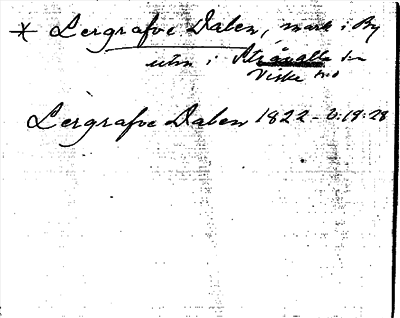 * Lergrafve Dalen, mark i By
utm i Stråvalla sn
Viske hd
Lergrafve Dalen 1822 - 2:19:28